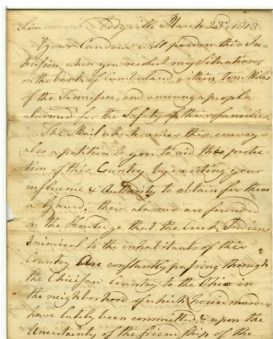 Sir Eddyville March 23d 1813
Your Candour will pardon this In-
trusion, when you recolect my Situation is
on the bank of Cumberland within ten Miles
of the Tennessee, and among a people
alarmed for the Safety of their families
The Mail which carries this, conveys
also a petition to you to aid the protec
tion of this Country by exerting your
influence & Authority to obtain for them
a guard. their alarms are founded
in the Knowledge that the Creek Indians
Inimical to the inhabitants of this
Country are constantly passing through
the Chicksaw Country to the Ohio in
the neighborhood of which Several murders
have lately been committed & upon the
Uncertainty of the friendship of the